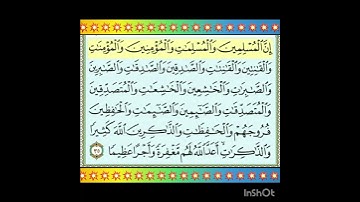 إِنَّ ٱلْمُسْلِمِينَ وَٱلْمُسْلِمَٰتِ وَٱلْمُؤْمِنِينَ وَٱلْمُؤْمِنَٰتِ
وَٱلْقَٰنِتِينَ وَٱلْقَٰنِتَٰتِ وَٱلصَّٰدِقِينَ وَٱلصَّٰدِقَٰتِ وَٱلصَّٰبِرِينَ
وَٱلصَّٰبِرَٰتِ وَٱلْخَٰشِعِينَ وَٱلْخَٰشِعَٰتِ وَٱلْمُتَصَدِّقِينَ
وَٱلْمُتَصَدِّقَٰتِ وَٱلصَّٰٓئِمِينَ وَٱلصَّٰٓئِمَٰتِ وَٱلْحَٰفِظِينَ
فُرُوجَهُمْ وَٱلْحَٰفِظَٰتِ وَٱلذَّٰكِرِينَ ٱللَّهَ كَثِيرًا
وَٱلذَّٰكِرَٰتِ أَعَدَّ ٱللَّهُ لَهُم مَّغْفِرَةً وَأَجْرًا عَظِيمًا ٣٥
InShOt